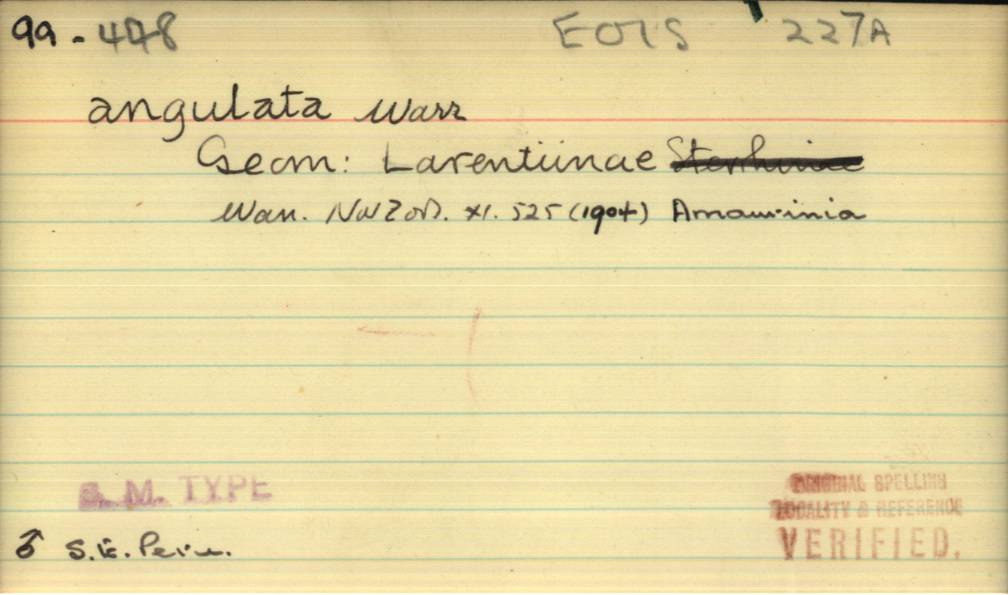 99-478 EOIS 227A
angulata Warr
Geom: Larentiinae Sterrhinae
Warr. NovZool. XI. 525 (1904) Amaurinia
B. M. TYPE
ORIGINAL SPELLING
LOCALITY & REFERENCE
VERIFIED.
♂ S.E. Peru.